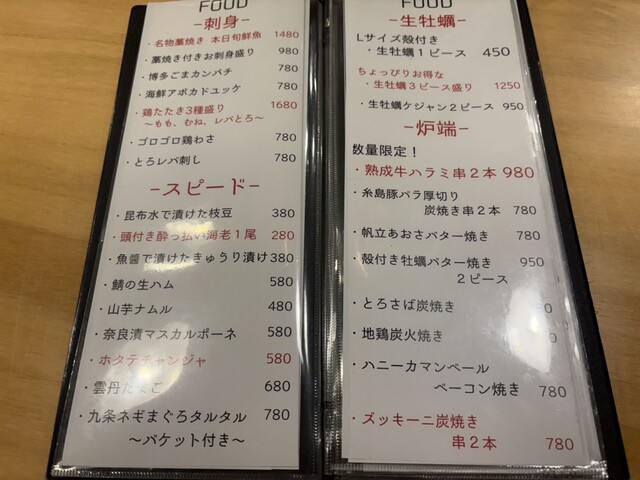 FOOD
-刺身-
・名物藁焼き 本日旬鮮魚 1480
・藁焼き付きお刺身盛り 980
・博多ごまカンパチ 780
・海鮮アボカドユッケ 780
・鶏たたき3種盛り 1680
～もも、むね、レバとろ～
・ゴロゴロ鶏わさ 780
・とろレバ刺し 780
-スピード-
・昆布水で漬けた枝豆 380
・頭付き酔っ払い海老1尾 280
・魚醬で漬けたきゅうり漬け 380
・鯖の生ハム 580
・山芋ナムル 480
・奈良漬マスカルポーネ 580
・ホタテチャンジャ 580
・雲丹たまご 680
・九条ネギまぐろタルタル 780
～バケット付き～
FOOD
-生牡蠣-
Lサイズ殻付き
・生牡蠣1ピース 450
ちょっぴりお得な
・生牡蠣3ピース盛り 1250
・生牡蠣ケジャン2ピース 950
-炉端-
数量限定！
・熟成牛ハラミ串2本 980
・糸島豚バラ厚切り
炭焼き串2本 780
・帆立あおさバター焼き 780
・殻付き牡蠣バター焼き 950
2ピース
・とろさば炭焼き
・地鶏炭火焼き
・ハニーカマンベール
ベーコン焼き 780
・ズッキーニ炭焼き
串2本 780